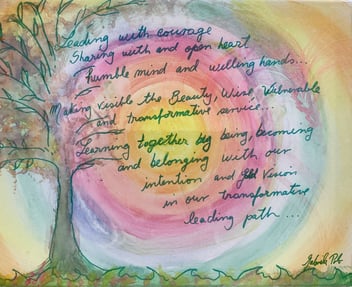 Leading with courage
Sharing with and open heart
humble mind and willing hands...
Making visible the Beauty, Wise, Vulnerable
and transformative service...
Learning together by being, becoming
and belonging with our
intention and Vision
in our transformative
leading path...
Gabriela